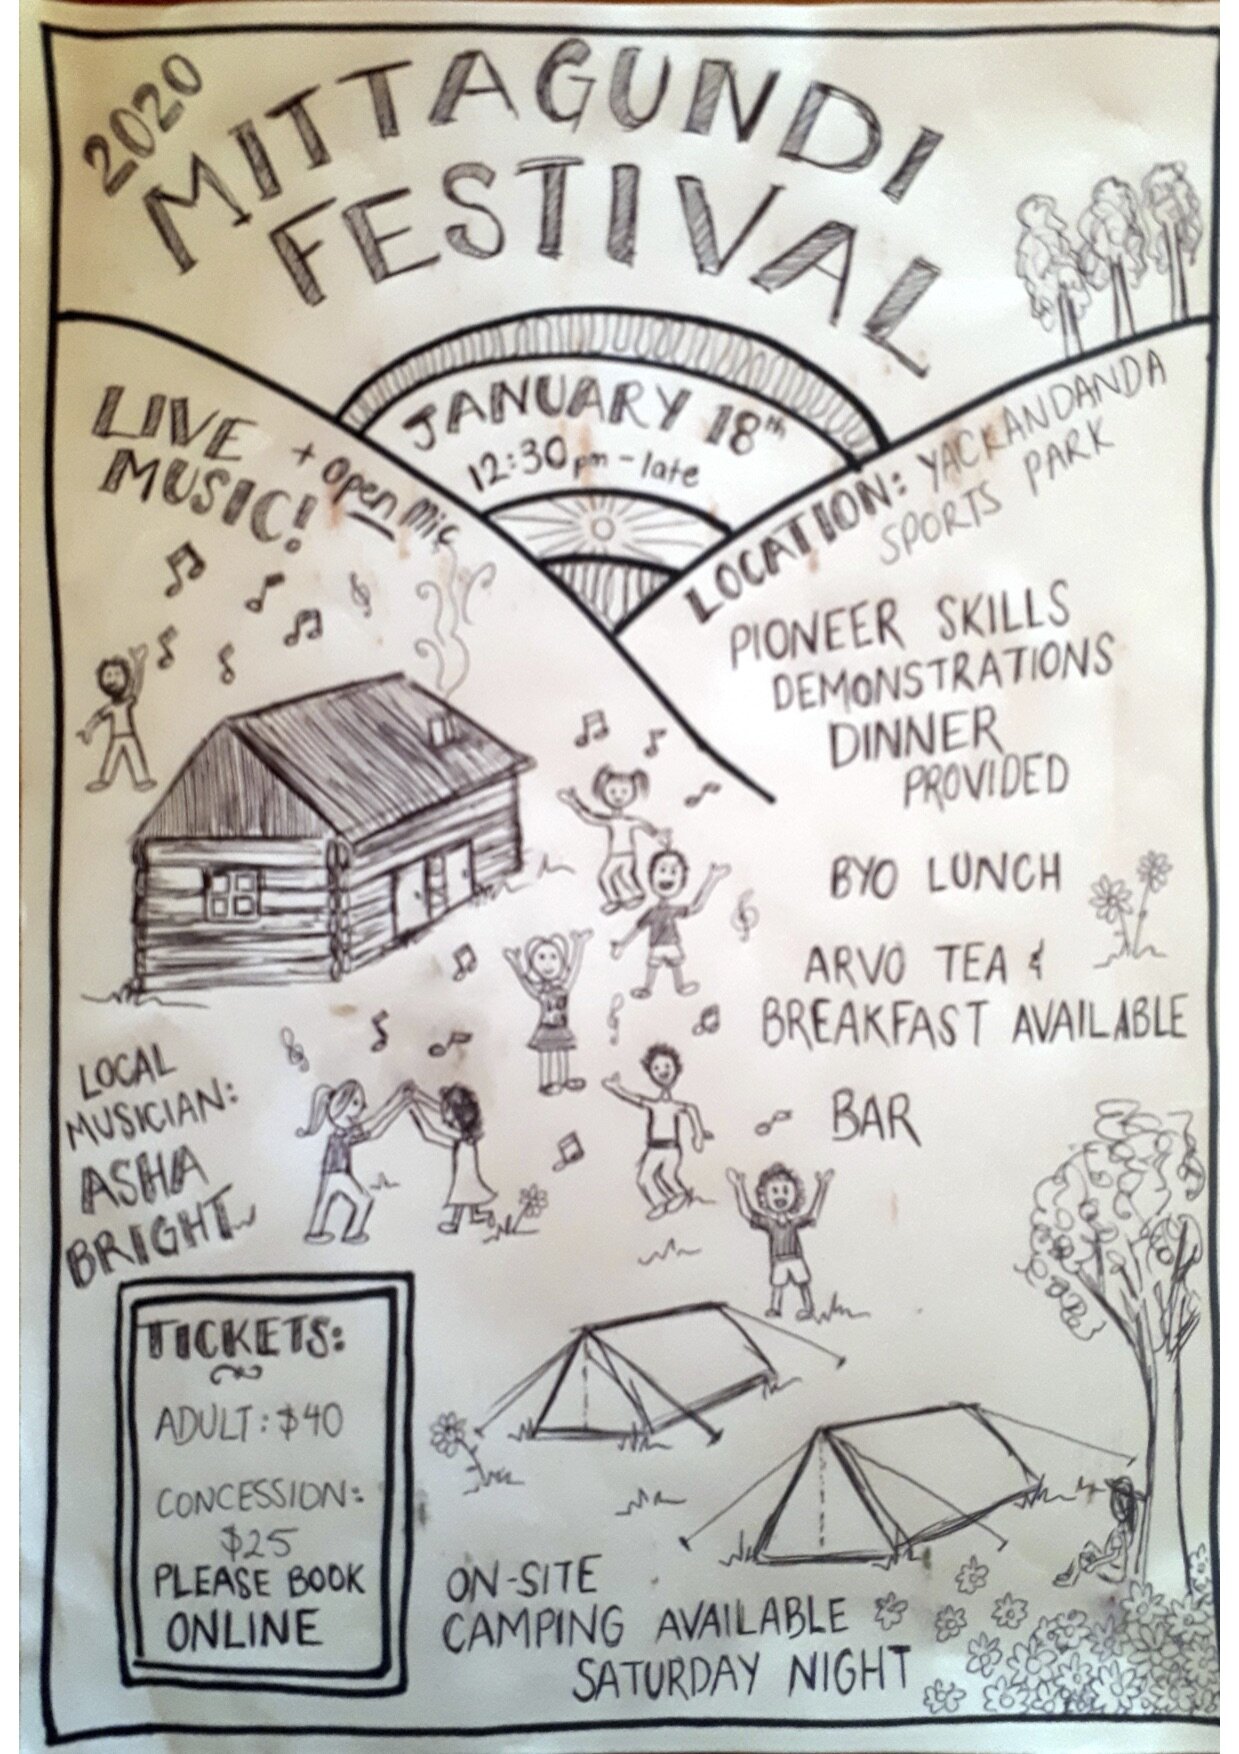 2020
MITTAGUNDI
FESTIVAL
JANUARY 18th
12:30pm - late
LIVE
MUSIC!
+ open mic
LOCATION: YACKANDANDA
SPORTS PARK
PIONEER SKILLS
DEMONSTRATIONS
DINNER
PROVIDED
BYO LUNCH
ARVO TEA &
BREAKFAST AVAILABLE
BAR
LOCAL
MUSICIAN:
ASHA
BRIGHT
TICKETS:
ADULT: $40
CONCESSION:
$25
PLEASE BOOK
ONLINE
ON-SITE
CAMPING AVAILABLE
SATURDAY NIGHT